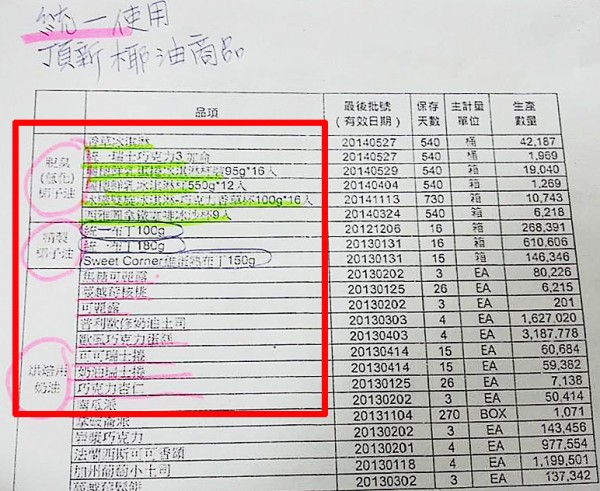 統一使用
頂新椰油商品
品項 最後批號(有效日期) 保存天數 主計量單位 生產數量
脫臭(氫化)椰子油
香草冰淇淋 20140527 540 桶 42,187
統一瑞士巧克力3加侖 20140527 540 桶 1,969
95g*16入 20140529 540 箱 19,040
550g*12入 20140404 540 箱 1,269
冰淇淋-巧克力香草杯100g*16入 20141113 730 箱 10,743
西雅圖拿鐵咖啡冰沙杯9入 20140324 540 箱 6,218
精製椰子油
統一布丁100g 20121206 16 箱 268,391
統一布丁180g 20130131 16 箱 610,606
Sweet Corner雞蛋布丁150g 20130131 15 箱 146,346
烘焙用奶油
焦糖可麗露 20130202 3 EA 80,226
蔓越莓核桃 20130125 26 EA 6,215
可麗露 20130202 3 EA 201
普利歐修奶油土司 20130303 4 EA 1,627,020
歐風巧克力蛋糕 20130403 4 EA 3,187,778
可可瑞士捲 20130414 15 EA 60,684
奶油瑞士捲 20130414 15 EA 59,382
巧克力杏仁 20130125 26 EA 7,138
南瓜派 20130202 3 EA 50,414
20131104 270 BOX 1,071
岩漿巧克力 20130202 3 EA 143,456
法蘭西斯可可香頌 20130201 4 EA 977,554
加州葡萄小土司 20130118 4 EA 1,199,501
20130302 3 EA 137,342